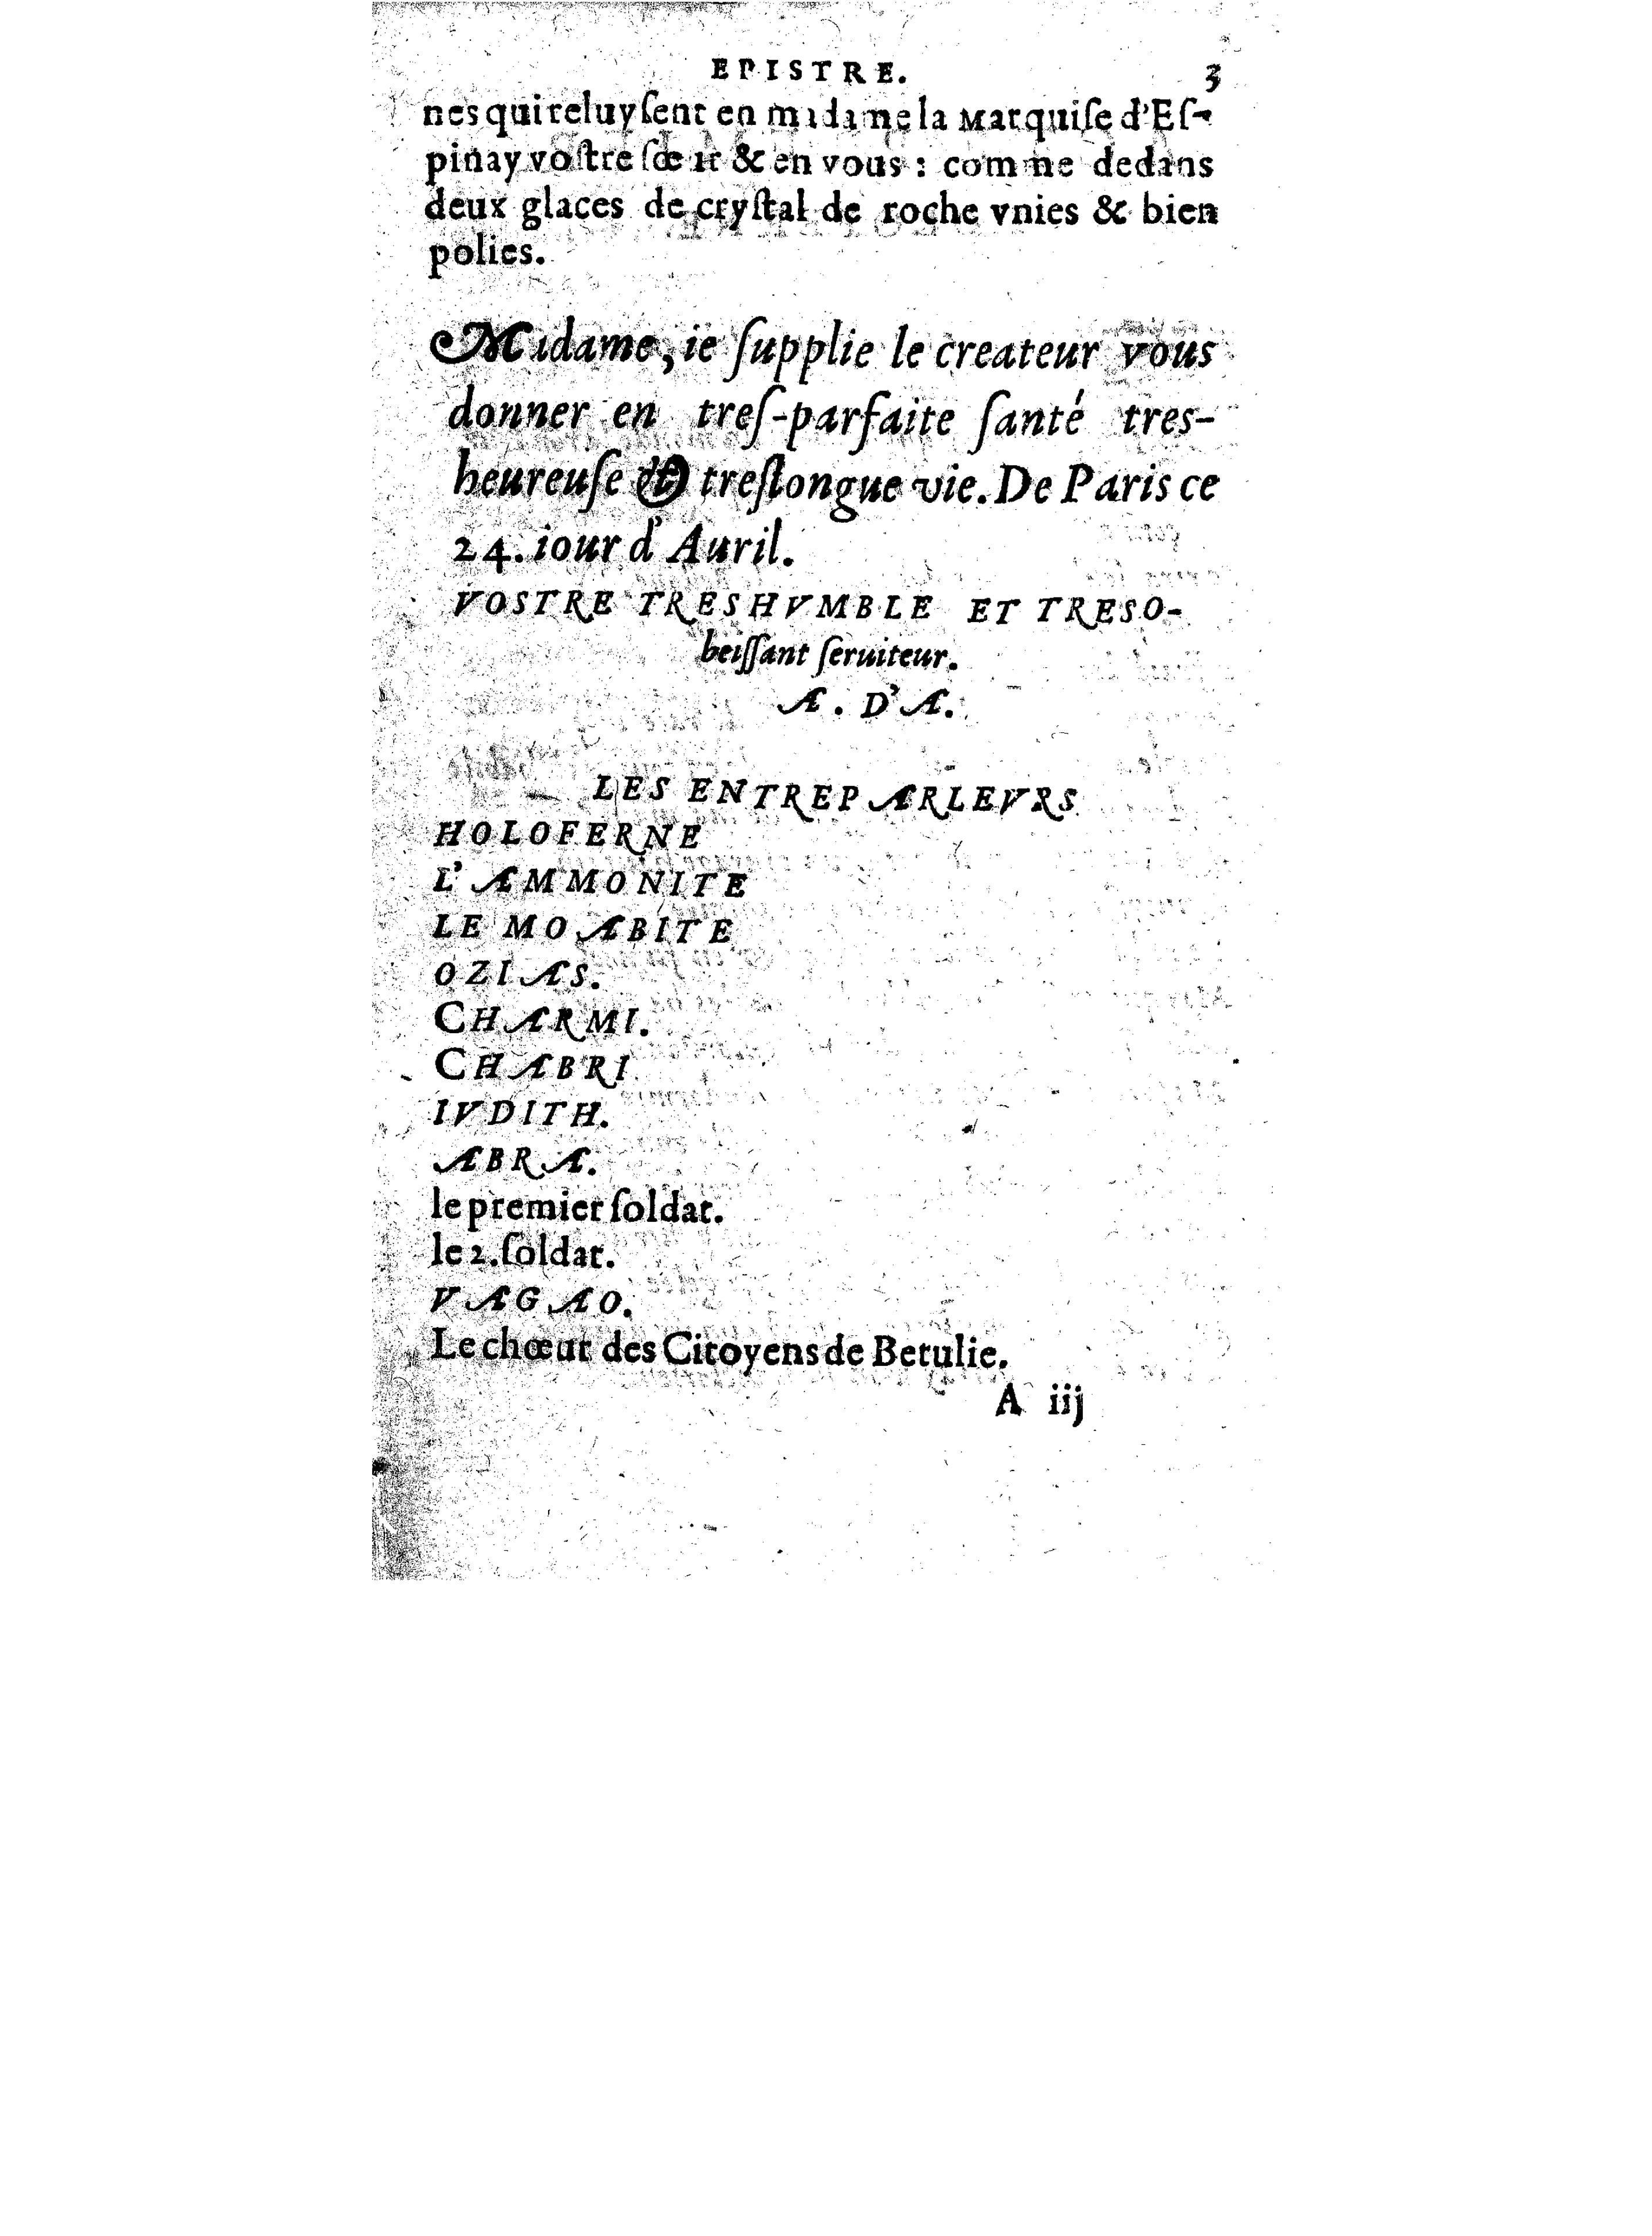 EPISTRE. 3
nes qui reluyſent en madame la Marquiſe d'Eſ-
pinay voſtre ſœur & en vous : comme dedans
deux glaces de cryſtal de roche vnies & bien
polies.
Madame, ie ſupplie le createur vous
donner en treſ-parfaite ſanté tres-
heureuſe & treſlongue vie. De Paris ce
24. iour d'Auril.
VOSTRE TRESHVMBLE ET TRESO-
beiſſant ſeruiteur.
A. D'A.
LES ENTREPARLEVRS
HOLOFERNE
L'AMMONITE
LE MOABITE
OZIAS.
CHARMI.
CHABRI
IVDITH.
ABRA.
le premier ſoldat.
le 2. ſoldat.
VAGAO.
Le chœur des Citoyens de Betulie.
A iij